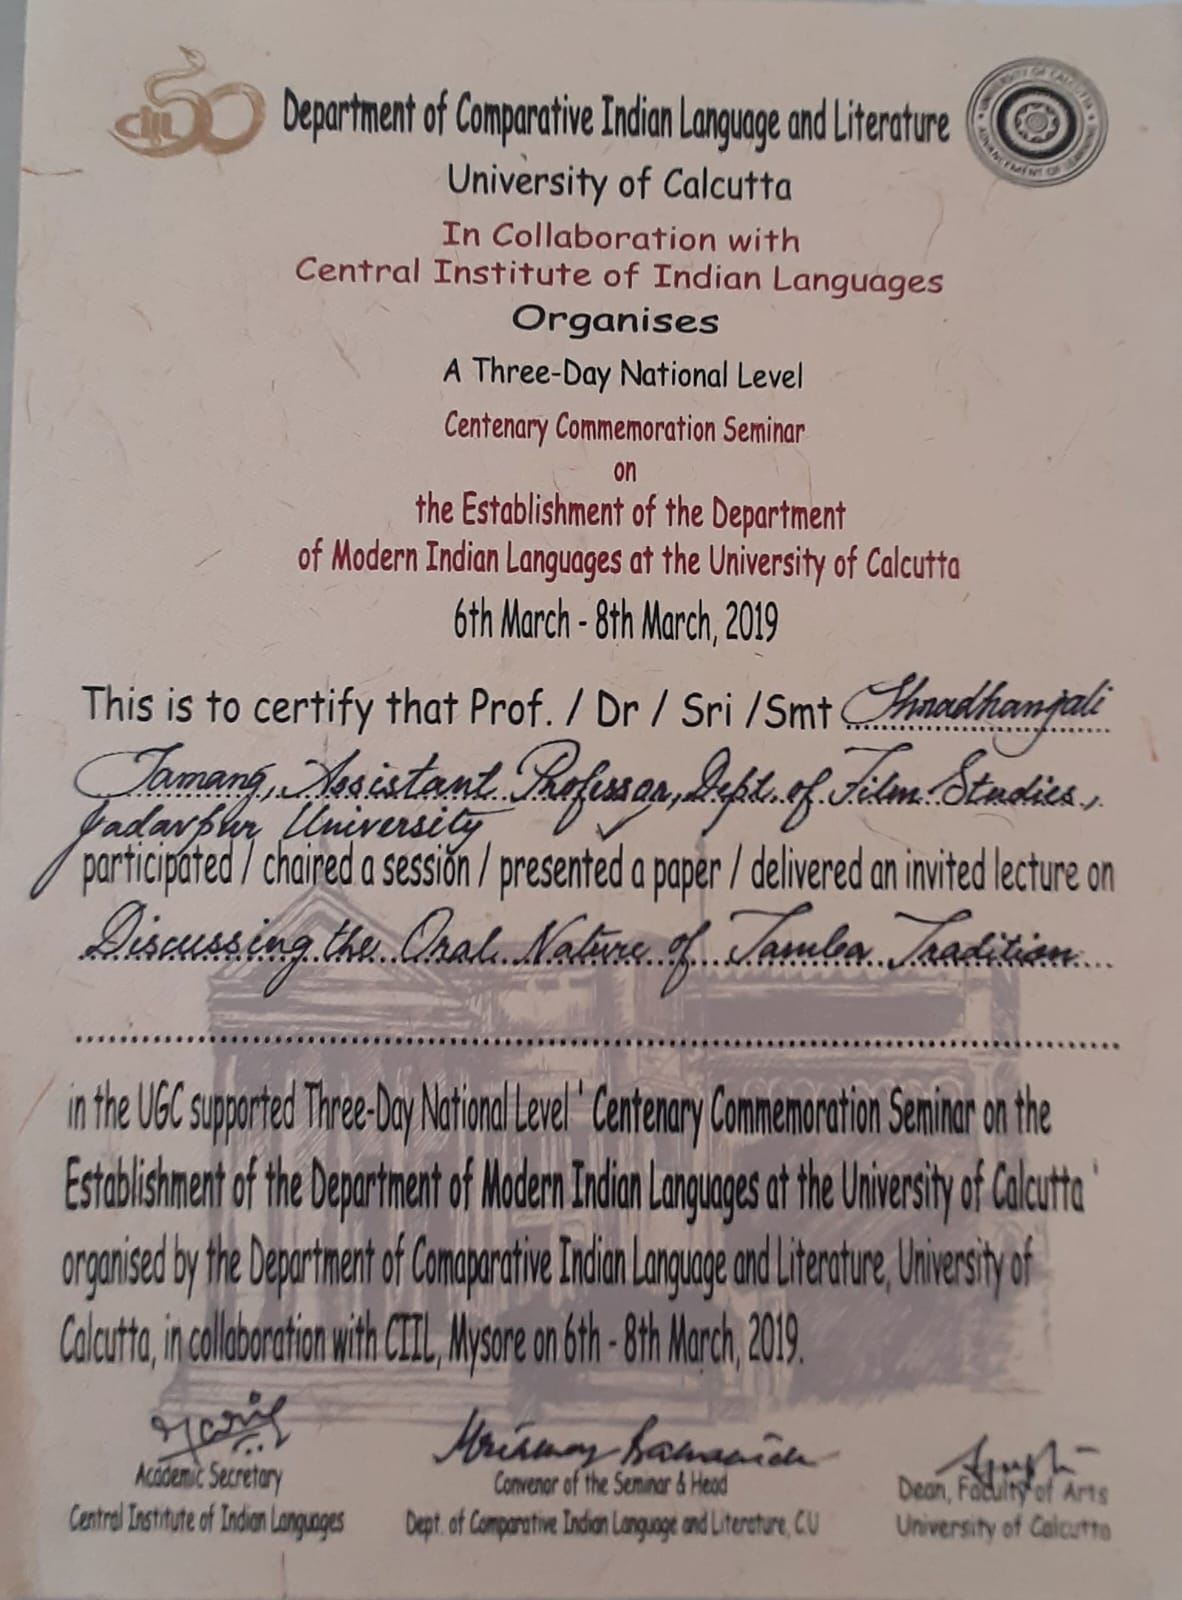 CIIL 50
Department of Comparative Indian Language and Literature
UNIVERSITY OF CALCUTTA
ADVANCEMENT OF LEARNING
University of Calcutta
In Collaboration with
Central Institute of Indian Languages
Organises
A Three-Day National Level
Centenary Commemoration Seminar
on
the Establishment of the Department
of Modern Indian Languages at the University of Calcutta
6th March - 8th March, 2019
This is to certify that Prof. / Dr / Sri /Smt Shradhanjali
Tamang, Assistant Professor, Dept. of Film Studies,
Jadavpur University
participated / chaired a session / presented a paper / delivered an invited lecture on
Discussing the Oral Nature of Tamba Tradition
in the UGC supported Three-Day National Level ' Centenary Commemoration Seminar on the
Establishment of the Department of Modern Indian Languages at the University of Calcutta '
organised by the Department of Comaparative Indian Language and Literature, University of
Calcutta, in collaboration with CIIL, Mysore on 6th - 8th March, 2019.
Academic Secretary
Central Institute of Indian Languages
Convenor of the Seminar & Head
Dept. of Comparative Indian Language and Literature, CU
Dean, Faculty of Arts
University of Calcutta